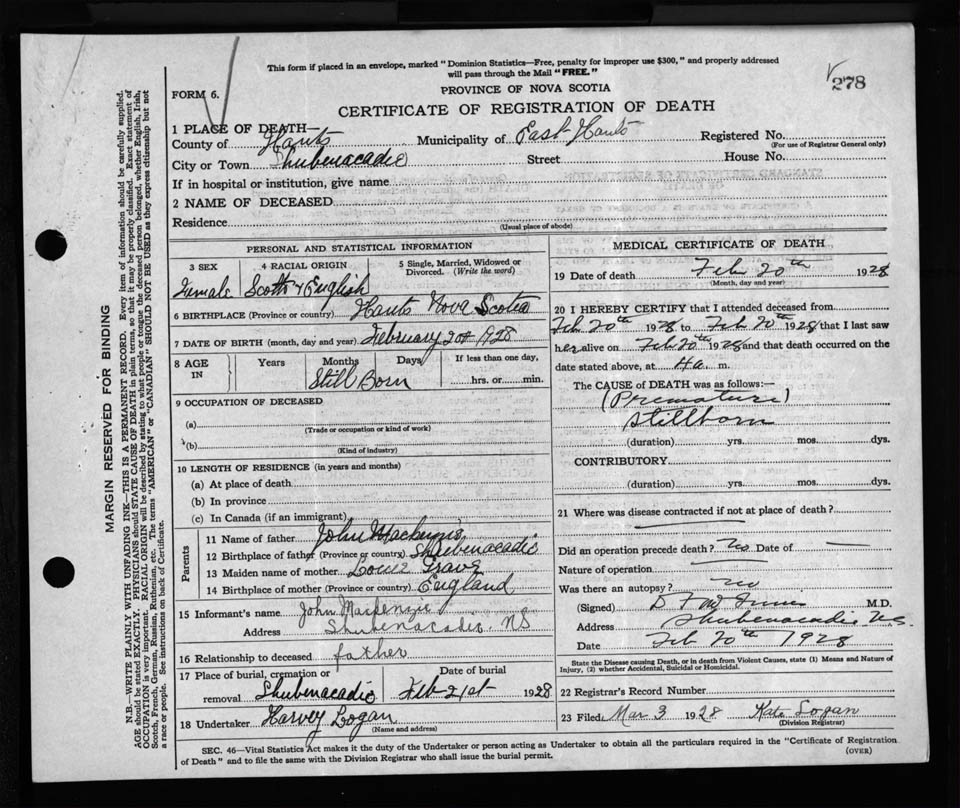 This form if placed in an envelope, marked "Dominion Statistics—Free, penalty for improper use $300," and properly addressed
will pass through the Mail "FREE."
278
FORM 6.
PROVINCE OF NOVA SCOTIA
CERTIFICATE OF REGISTRATION OF DEATH
1 PLACE OF DEATH—
County of Hants Municipality of East Hants Registered No.
(For use of Registrar General only)
City or Town Shubenacadie Street House No.
If in hospital or institution, give name
2 NAME OF DECEASED
Residence
(Usual place of abode)
PERSONAL AND STATISTICAL INFORMATION
3 SEX 4 RACIAL ORIGIN 5 Single, Married, Widowed or
Divorced. (Write the word)
Female Scotts & English
6 BIRTHPLACE (Province or country) Hants Nova Scotia
7 DATE OF BIRTH (month, day and year) February 20th 1928
8 AGE IN Years Months Days If less than one day,
Still Born hrs. or min.
9 OCCUPATION OF DECEASED
(a)
(Trade or occupation or kind of work)
(b)
(Kind of industry)
10 LENGTH OF RESIDENCE (in years and months)
(a) At place of death
(b) In province
(c) In Canada (if an immigrant)
Parents
11 Name of father John Mackenzie
12 Birthplace of father (Province or country) Shubenacadie
13 Maiden name of mother
14 Birthplace of mother (Province or country) England
15 Informant's name John Mackenzie
Address Shubenacadie, NS
16 Relationship to deceased father
17 Place of burial, cremation or Date of burial
removal Shubenacadie Feb 21st 1928
18 Undertaker Harvey Logan
(Name and address)
MEDICAL CERTIFICATE OF DEATH
19 Date of death Feb 20th 1928
(Month, day and year)
20 I HEREBY CERTIFY that I attended deceased from
Feb 20th 1928 to Feb 20th 1928 that I last saw
her alive on Feb 20th 1928 and that death occurred on the
date stated above, at 4 a. m.
The CAUSE of DEATH was as follows:—
(Premature)
Stillborn
(duration) yrs. mos. dys.
CONTRIBUTORY
(duration) yrs. mos. dys.
21 Where was disease contracted if not at place of death?
Did an operation precede death? No Date of —
Nature of operation
Was there an autopsy? no
(Signed) M.D.
Address Shubenacadie N.S.
Date Feb 20th 1928
State the Disease causing Death, or in death from Violent Causes, state (1) Means and Nature of
Injury, (2) whether Accidental, Suicidal or Homicidal.
22 Registrar's Record Number
23 Filed Mar 3 1928 Kate Logan
(Division Registrar)
SEC. 46—Vital Statistics Act makes it the duty of the Undertaker or person acting as Undertaker to obtain all the particulars required in the "Certificate of Registration
of Death" and to file the same with the Division Registrar who shall issue the burial permit.
(OVER)
MARGIN RESERVED FOR BINDING
N.B.—WRITE PLAINLY WITH UNFADING INK—THIS IS A PERMANENT RECORD. Every item of information should be carefully supplied.
AGE should be stated EXACTLY. PHYSICIANS should STATE CAUSE OF DEATH in plain terms, so that it may be properly classified. Exact statement of
OCCUPATION is very important. RACIAL ORIGIN will be described by stating to what people or tongue the deceased person belonged, whether English, Irish,
Scotch, French, German, Russian, Ruthenian, etc. The terms "AMERICAN" or "CANADIAN" SHOULD NOT BE USED as they express citizenship but not
a race or people. See instructions on back of Certificate.